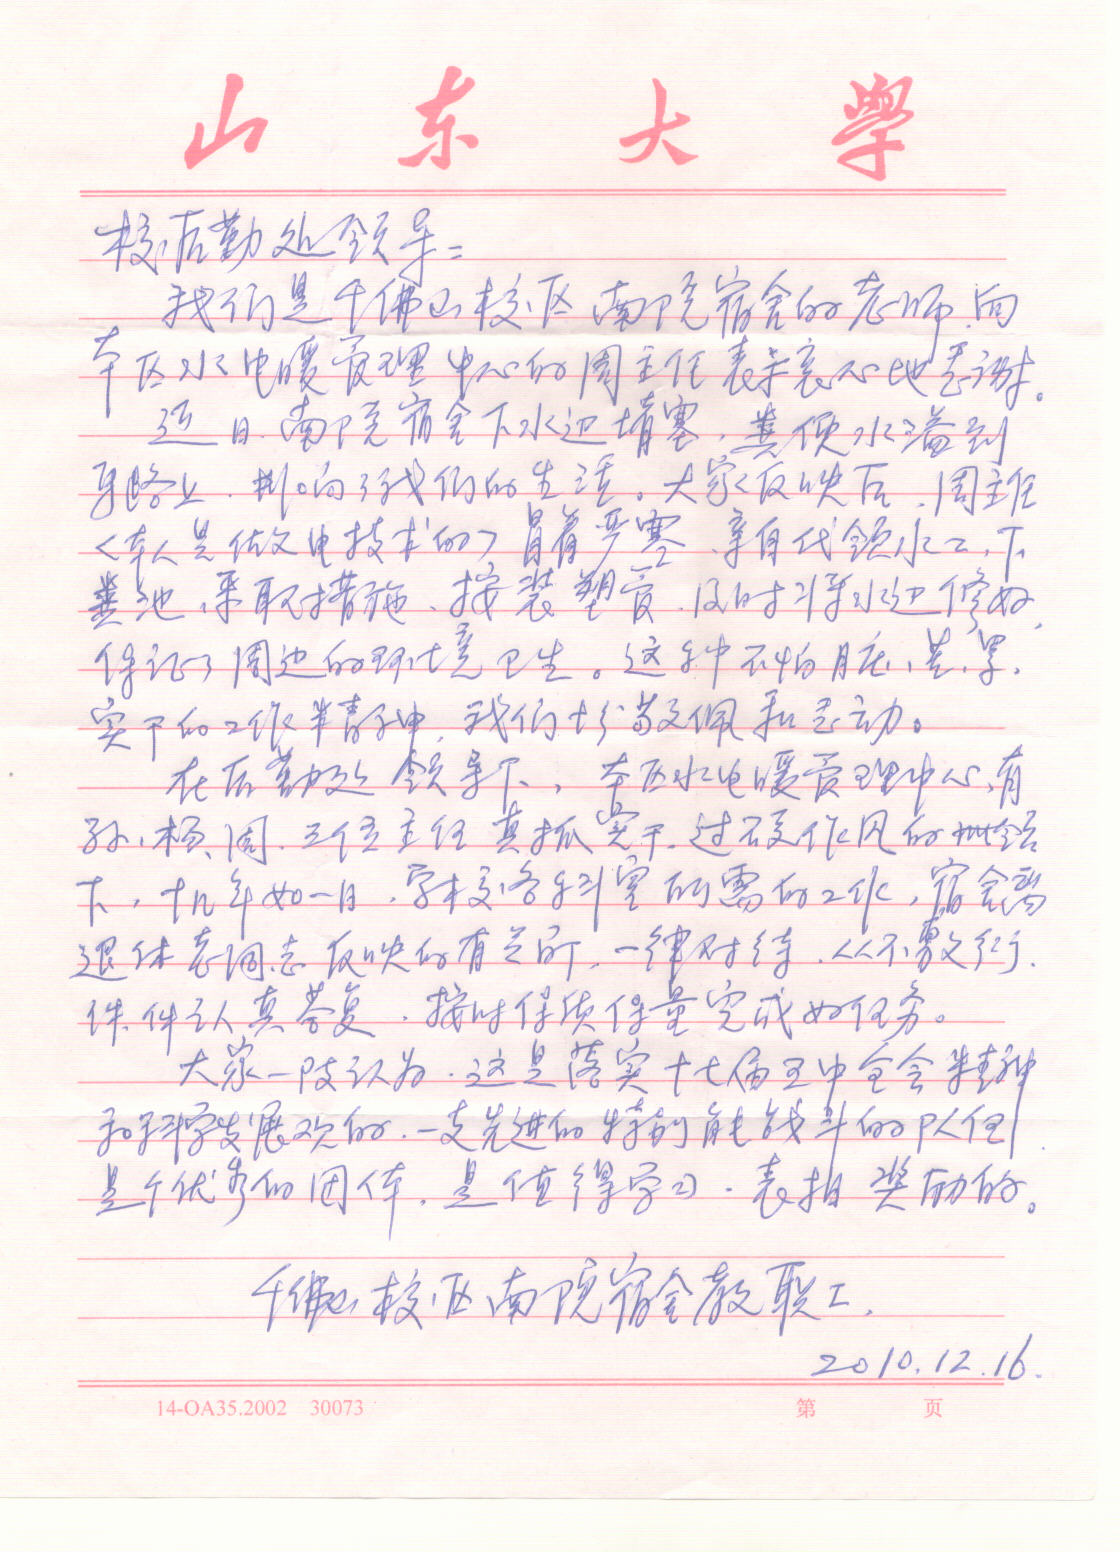 山东大学
校后勤处领导：
我们是千佛山校区南院宿舍的老师，向
本区水电暖管理中心的周主任表示衷心地感谢。
近日，南院宿舍下水道堵塞，粪便水溢到
马路上，影响了我们的生活。大家反映后，周主任
〈本人是做电技术的〉冒着严寒，亲自代领水工，下
粪池，采取措施、按装塑管，及时将水道修好，
保证了周边的环境卫生。这种不怕脏、苦、累，
实干的工作精神，我们十分敬佩和感动。
在后勤处领导下，本区水电暖管理中心，有
孙、杨、周，三位主任真抓实干，过硬作风的带领
下，十几年如一日，学校各科室所需的工作，宿舍离
退休老同志反映的有关所，一律对待，从不敷衍，
件件认真答复，按时保质保量完成好任务。
大家一致认为，这是落实十七届五中全会精神
和科学发展观的，一支先进的特别能战斗的队伍
是个优秀的团体，是值得学习，表扬奖励的。
千佛山校区南院宿舍教职工，
2010.12.16.
14-OA35.2002 30073 第 页